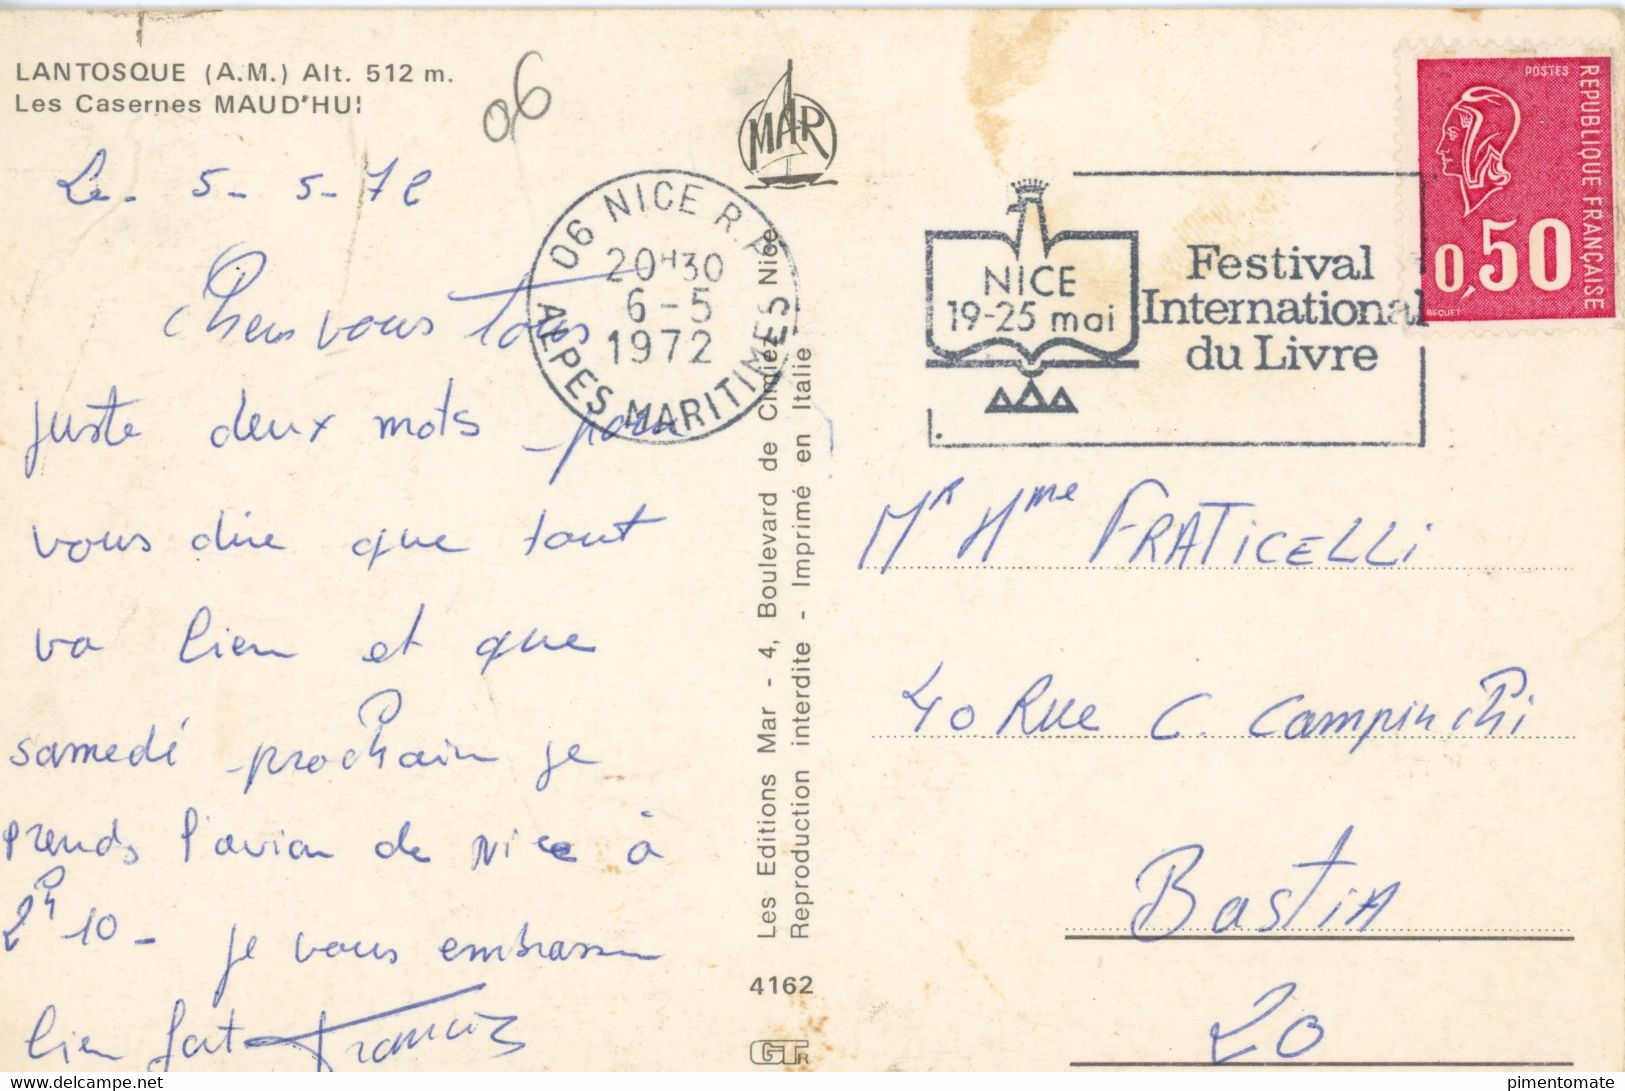 LANTOSQUE (A.M.) Alt. 512 m.
Les Casernes MAUD'HUI
06
Le - 5 - 5 - 72
Chers vous tous
juste deux mots pour
vous dire que tout
va bien et que
samedi prochain je
prends l'avion de Nice à
2h 10 - je vous embrasse
bien fort Francis
MAR
06 NICE R.P.
20H30
6 - 5
1972
ALPES MARITIMES
NICE
19-25 mai
Festival
International
du Livre
POSTES
REPUBLIQUE FRANÇAISE
0,50
BEQUET
Les Editions Mar - 4, Boulevard de Cimiez Nice
Reproduction interdite - Imprimé en Italie
4162
Mr Mme FRATICELLI
40 Rue C. Campinchi
Bastia
20
pimentomate